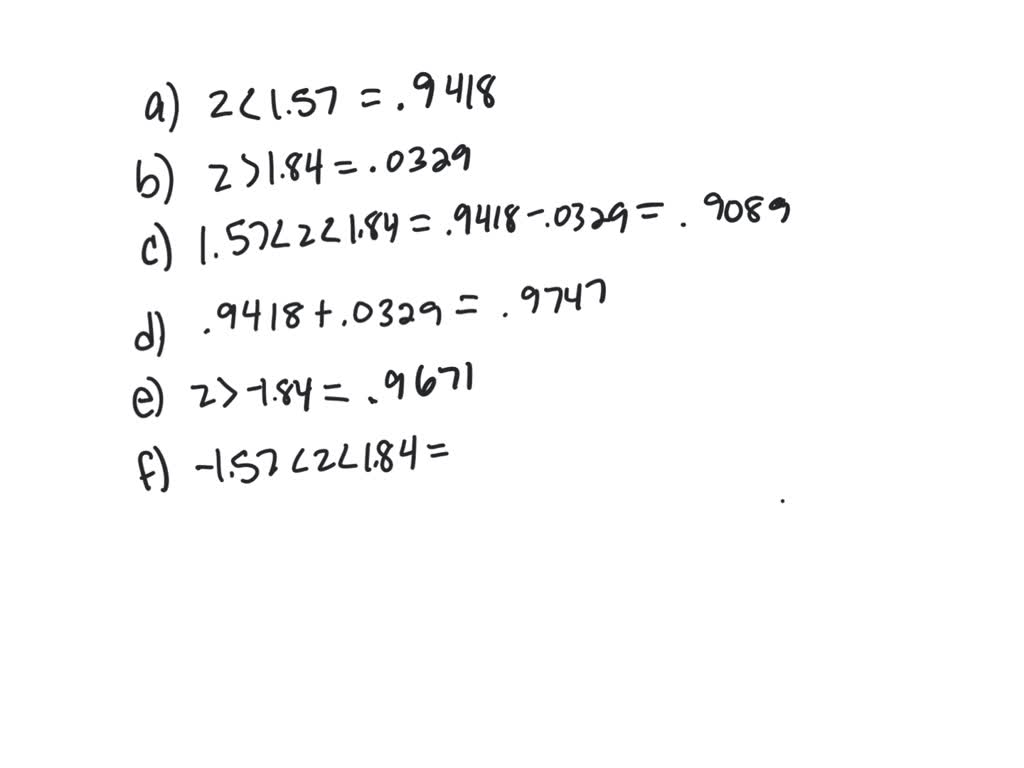 a) z<1.57 = .9418
b) z>1.84 = .0329
c) 1.57<z<1.84 = .9418-.0329 = .9089
d) .9418+.0329 = .9747
e) z>-1.84 = .9671
f) -1.57<z<1.84 =